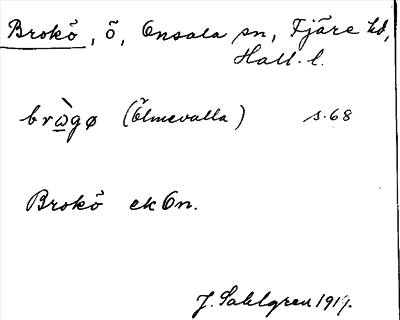 Brokö, ö, Onsala sn, Fjäre hd,
Hall. l.
brὼ̲gø (Ölmevalla) s. 68
Brokö ek On.
J. Sahlgren 1919.